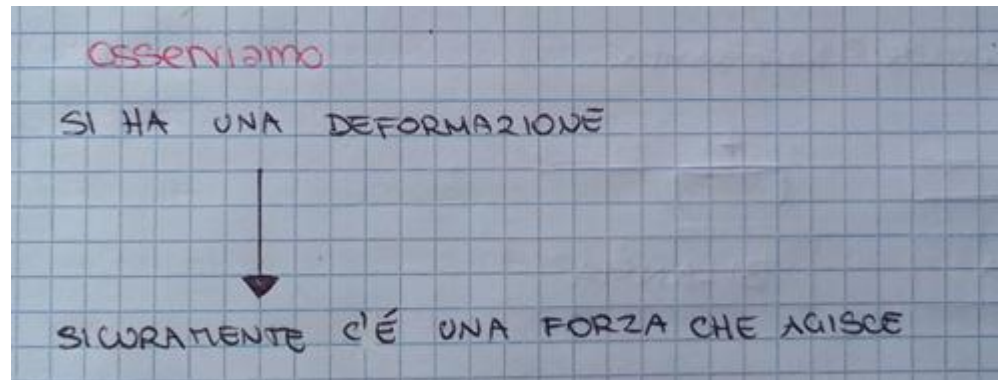 osserviamo
SI HA UNA DEFORMAZIONE
SICURAMENTE C'É UNA FORZA CHE AGISCE